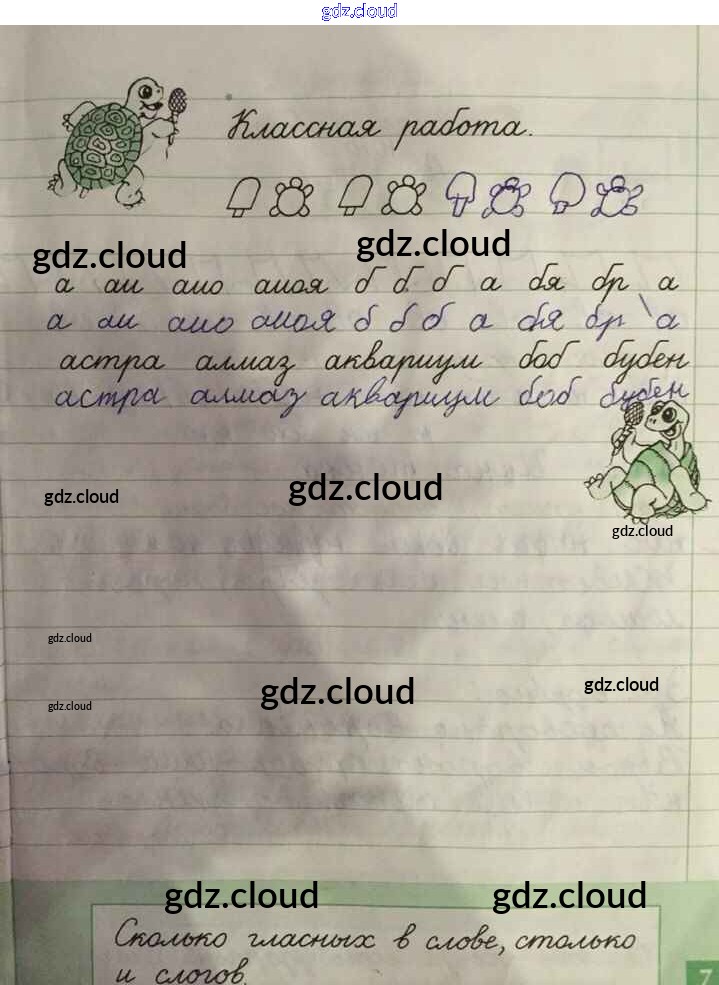 gdz.cloud
Классная работа.
gdz.cloud gdz.cloud
а аи аио аиоя б б б а бя бр а
а аи аио аиоя б б б а бя бр а
астра алмаз аквариум боб бубен
астра алмаз аквариум боб бубен
gdz.cloud gdz.cloud
gdz.cloud
gdz.cloud
gdz.cloud gdz.cloud
gdz.cloud
gdz.cloud gdz.cloud
Сколько гласных в слове, столько
и слогов.
7